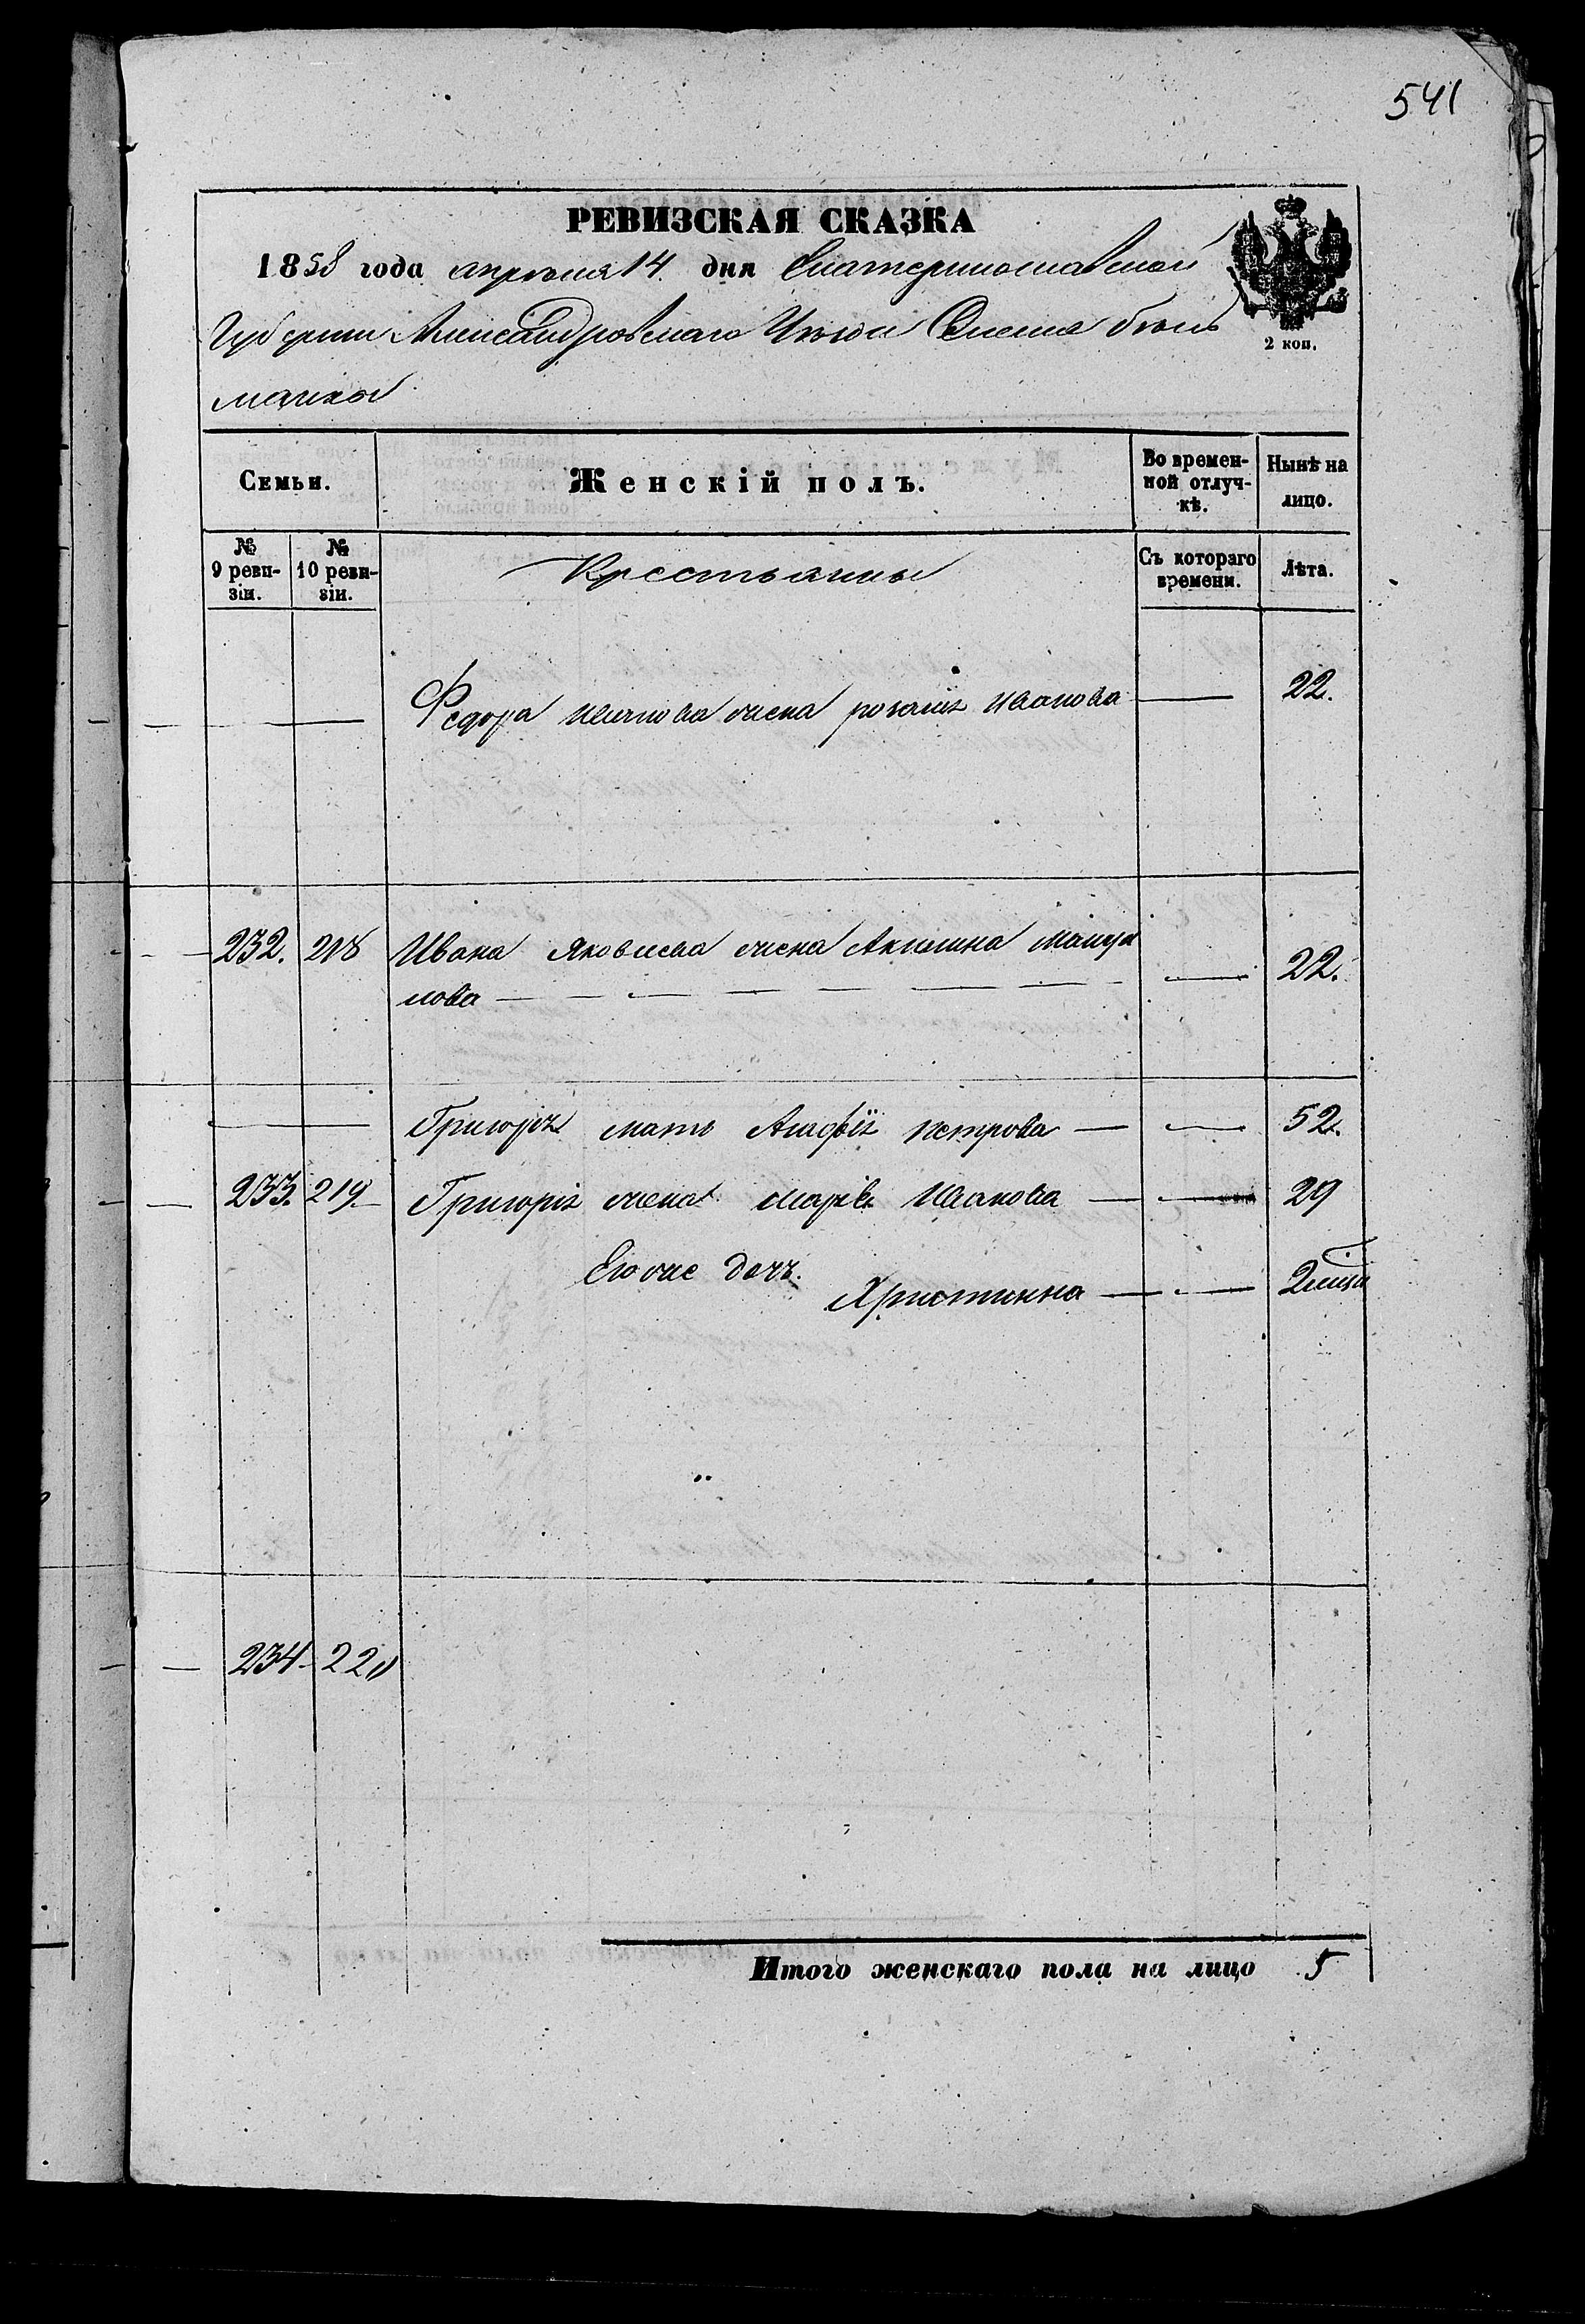 541
РЕВИЗСКАЯ СКАЗКА
1858 года апреля 14 дня Екатеринославской
Губернии Александровскаго Уезда Селения Бель
манки
2 коп.
Семьи.
Женскій полъ.
Во времен-
ной отлуч-
кѣ.
Нынѣ на
лицо.
№
9 реви-
зіи.
№
10 реви-
зіи.
Крестьяны
Съ котораго
времени.
Лѣта.
Федора Иванова жена розалія Иванова — 22.
232. 218 Ивана Яковлева жена Акилина Мануи
лова — 22.
Григорія мать Агафія петрова — 52.
233. 219 Григорія жена марія Иванова — 29
Его же дочь
Христинна — 2 меся
234 220
Итого женскаго пола на лицо 5